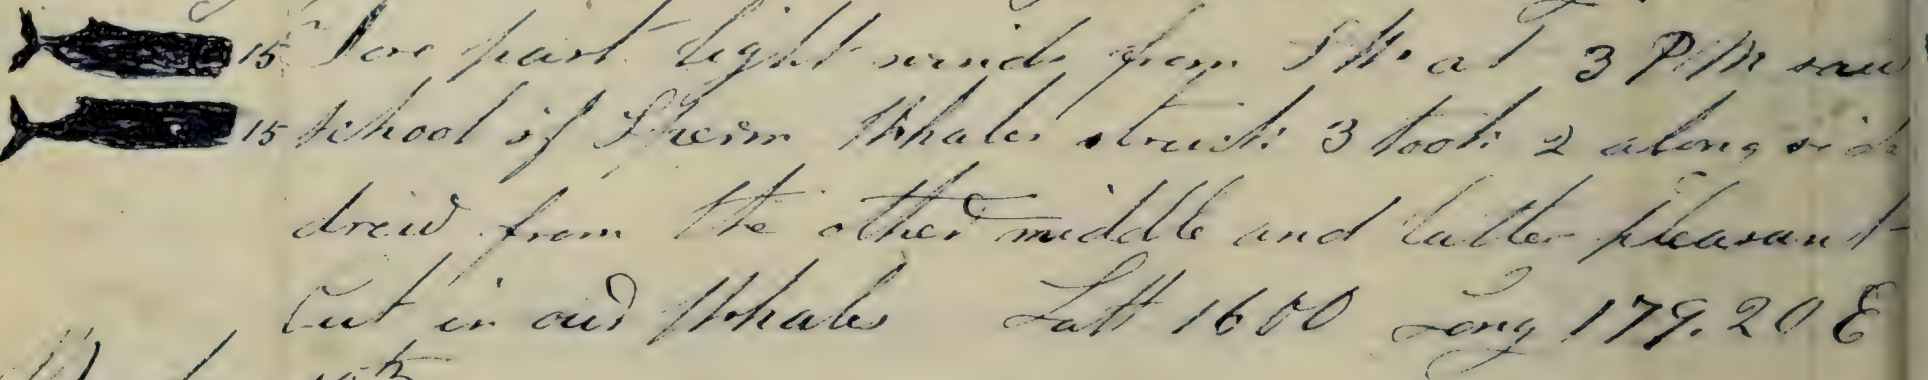 15 Fore part light winds from SW at 3 PM saw
15 School of Sperm Whales struck 3 took 2 along side
drew from the other middle and latter pleasant
Cut in our Whales Latt 16 00 Long 179.20 E